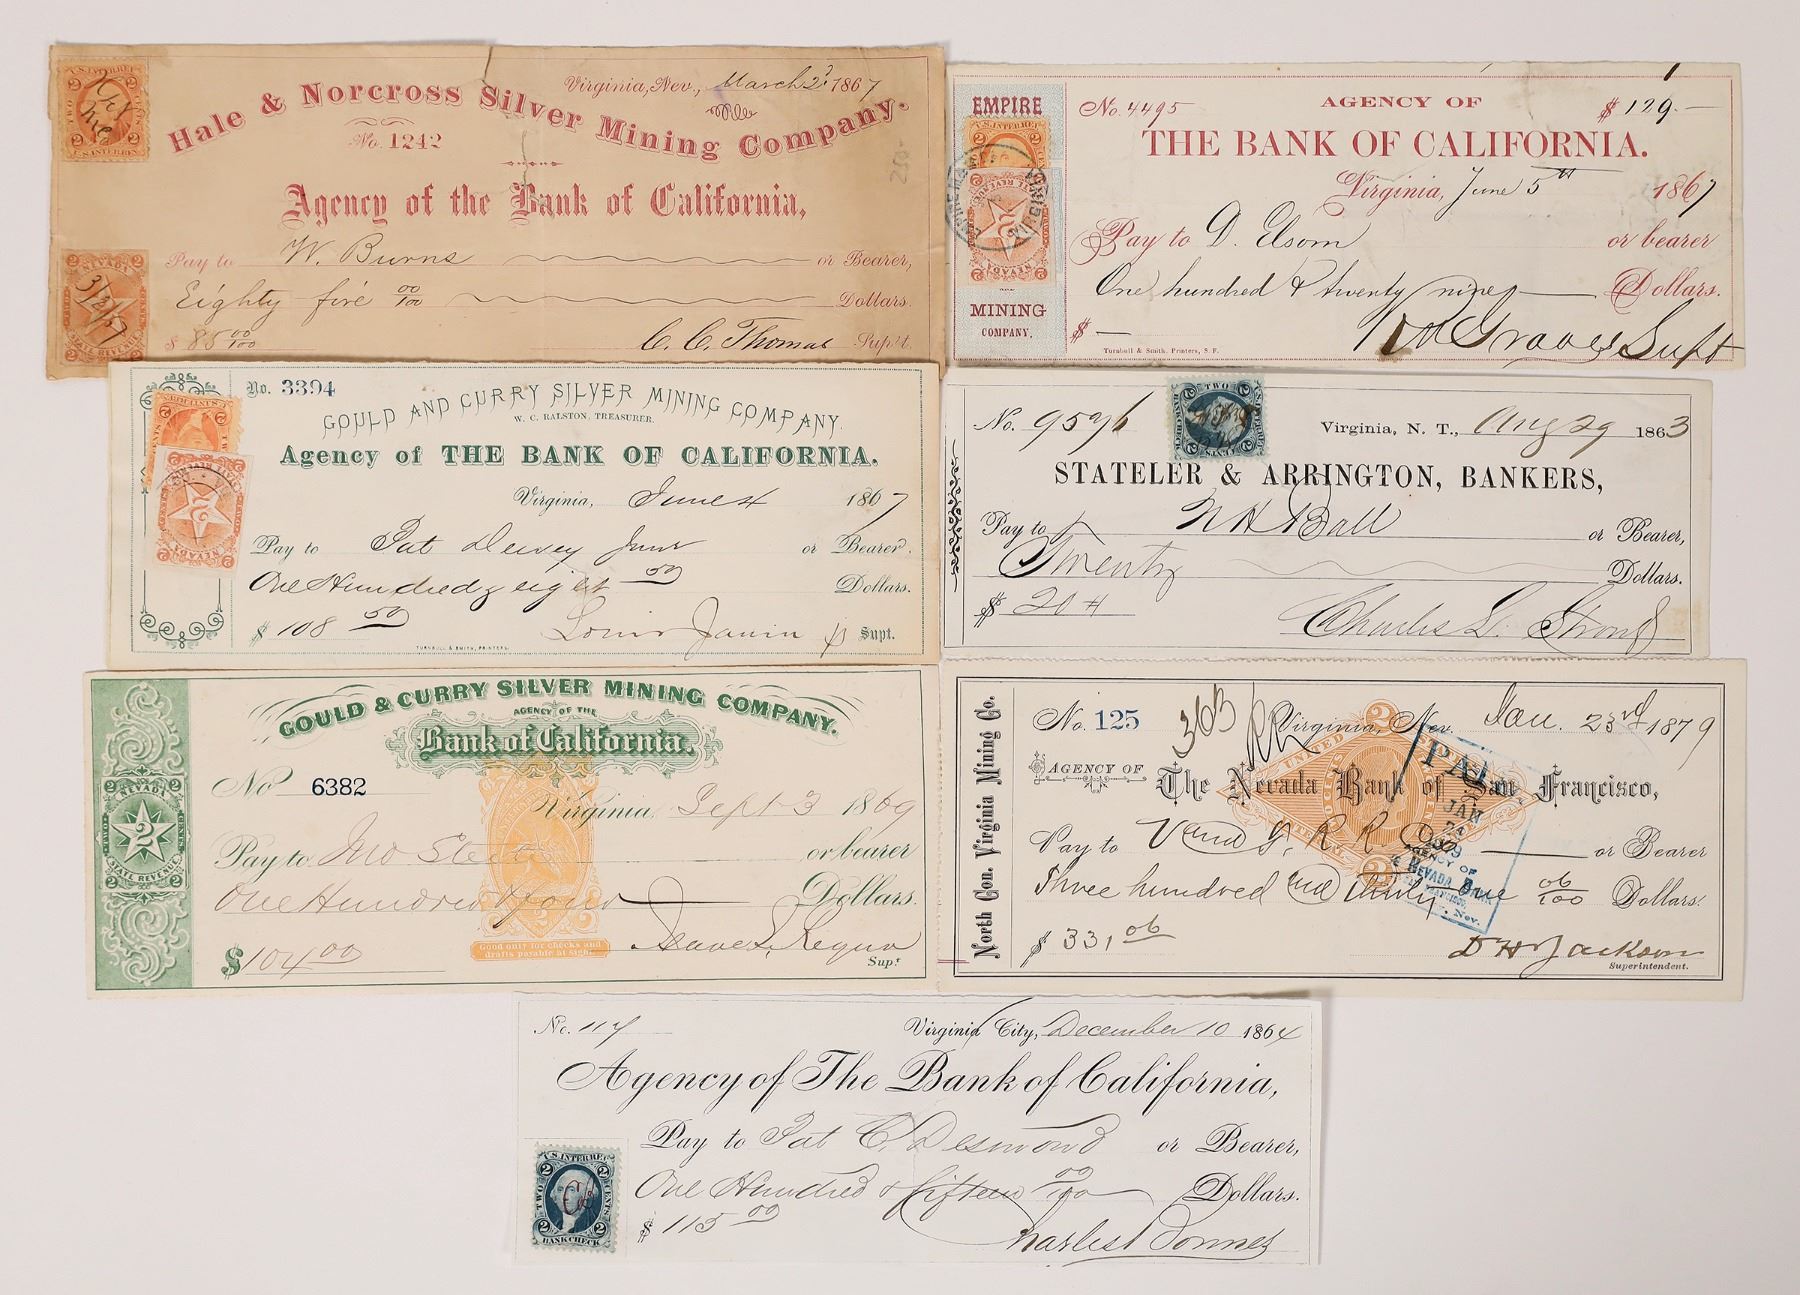 Hale & Norcross Silver Mining Company.
Virginia, Nev., March 2 1867
No. 1242
250-
Agency of the Bank of California,
Pay to W. Burns or Bearer,
Eighty five 00/100 Dollars.
$ 85 00/100 C. C. Thomas Sup't.
U.S. INTER. REV.
NEVADA
3/2/67
STATE REVENUE
EMPIRE
MINING
COMPANY.
No. 4495 AGENCY OF $ 129.-
THE BANK OF CALIFORNIA.
Virginia, June 5th 1867
Pay to D. Elsom or bearer
One hundred & twenty nine Dollars.
$ - Graves Supt
Turnbull & Smith, Printers, S. F.
No. 3394
GOULD AND CURRY SILVER MINING COMPANY.
W. C. RALSTON, TREASURER.
Agency of THE BANK OF CALIFORNIA.
Virginia, June 4 1867
Pay to Pat Dewey or Bearer.
One Hundred & eight 50 Dollars.
$ 108 50 Louis Janin Jr Supt.
TURNBULL & SMITH, PRINTERS.
No. 9576 Virginia, N. T., Aug 29 1863
STATELER & ARRINGTON, BANKERS,
Pay to N H Ball or Bearer,
Twenty Dollars.
$ 20 Charles L. Strong
GOULD & CURRY SILVER MINING COMPANY.
AGENCY OF THE
Bank of California.
No 6382
Virginia Sept 3 1869
Pay to Jno or bearer
One Hundred four Dollars.
$104 00 Isaac L. Requa
Supt
NEVADA
2
TWO CENTS
STATE REVENUE
Good only for checks and
drafts payable at sight.
North Con. Virginia Mining Co.
No. 125 363 Virginia, Nev. Jan. 23rd 1879
AGENCY OF The Nevada Bank of San Francisco,
Pay to V and T. R R Co or Bearer
Three hundred and thirty one 06/100 Dollars.
$ 331,06 D H Jackson
Superintendent.
PAID
JAN
24
1879
AGENCY OF
NEVADA BANK
No. 117 Virginia City, December 10 1864
Agency of The Bank of California,
Pay to Pat C. Desmond or Bearer,
One Hundred & fifteen 00/100 Dollars.
$ 115 00 Charles Bonner
U.S. INTER. REV.
TWO CENTS
BANK CHECK